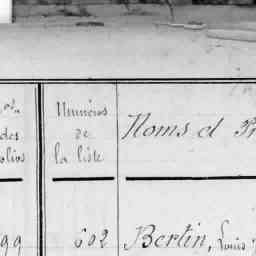 Nos des folios
Numéros de la liste
Noms et
99
602
Bertin, Louis